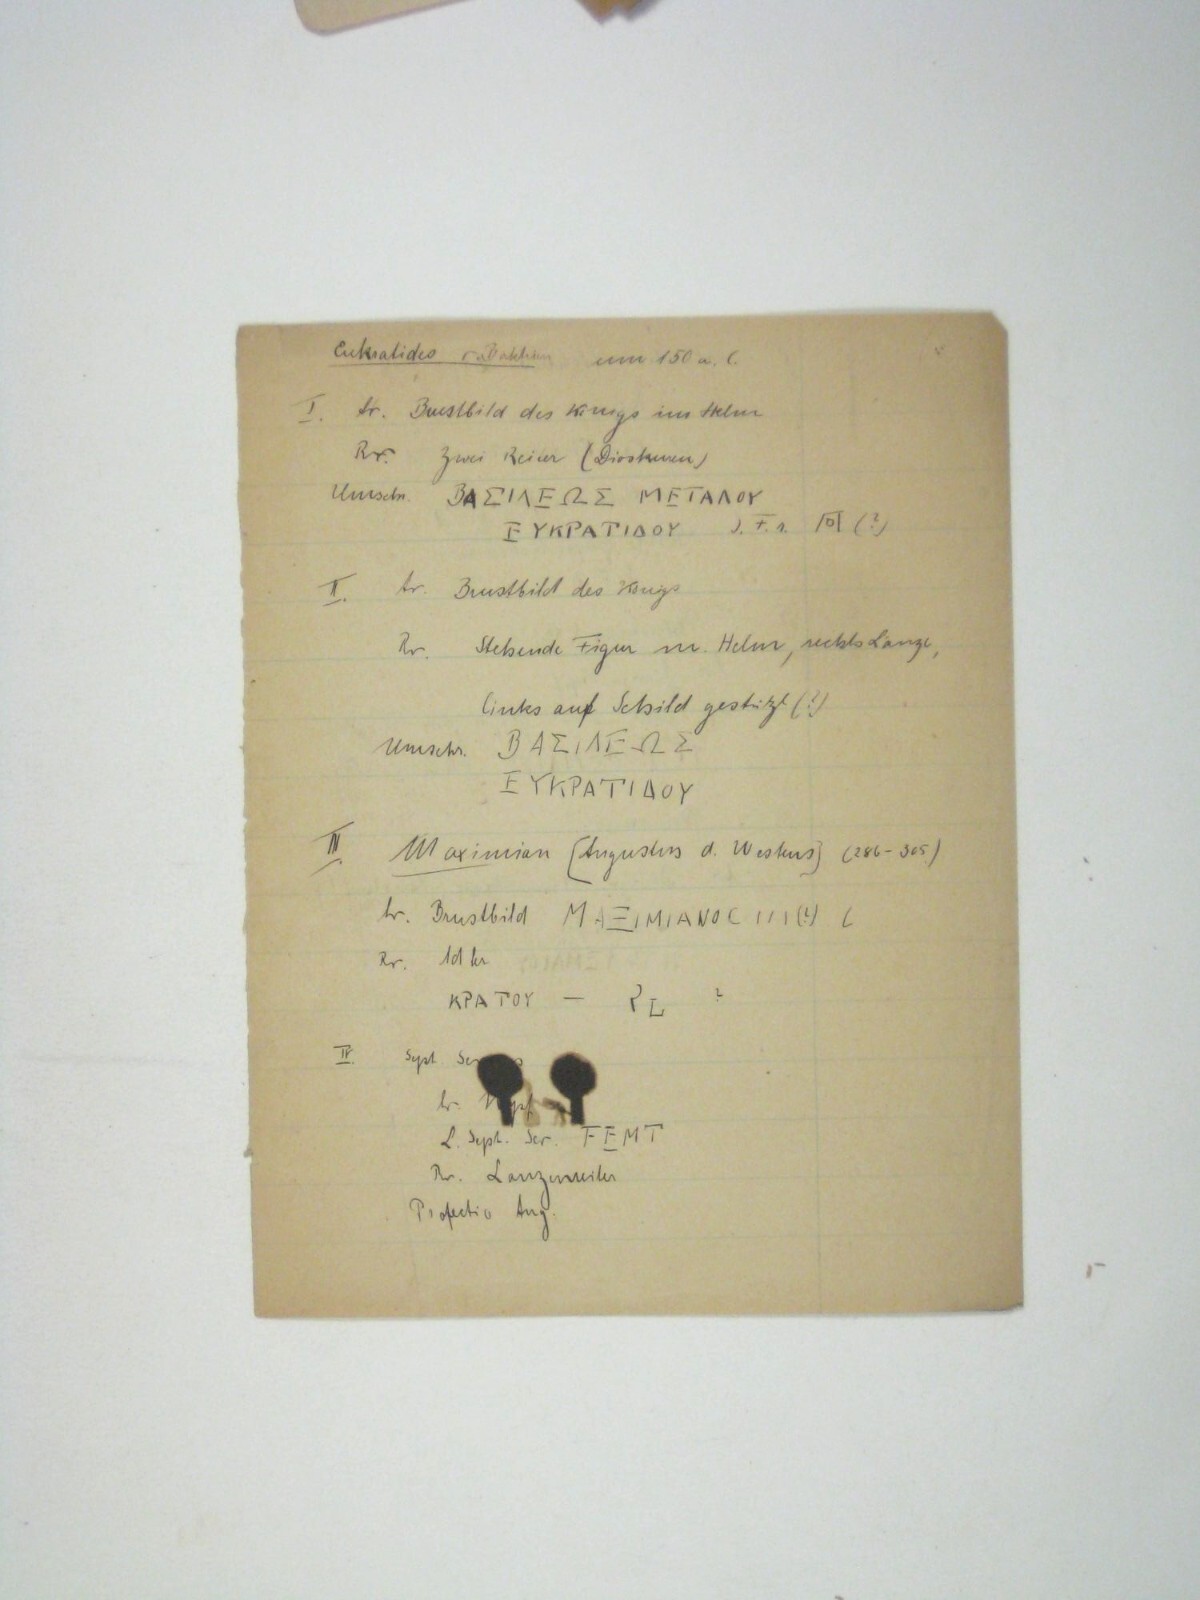 Eukratides v. Baktrien um 150 a. C.
I. Av. Brustbild des Königs im Helm
Rv. Zwei Reiter (Dioskuren)
Umschr. ΒΑΣΙΛΕΩΣ ΜΕΓΑΛΟΥ
ΕΥΚΡΑΤΙΔΟΥ (?)
II. Av. Brustbild des Königs
Rv. Stehende Figur m. Helm, rechts Lanze,
links auf Schild gestützt (?)
Umschr. ΒΑΣΙΛΕΩΣ
ΕΥΚΡΑΤΙΔΟΥ
Maximian [Augustus d. Westens] (286-305)
Av. Brustbild ΜΑΞΙΜΙΑΝΟC
Rv. Adler
ΚΡΑΤΟΥ — ?
IV. Sept.
Av. Kopf
L. Sept. Sev. FEMT
Rv. Lanzenreiter
Profectio Aug.